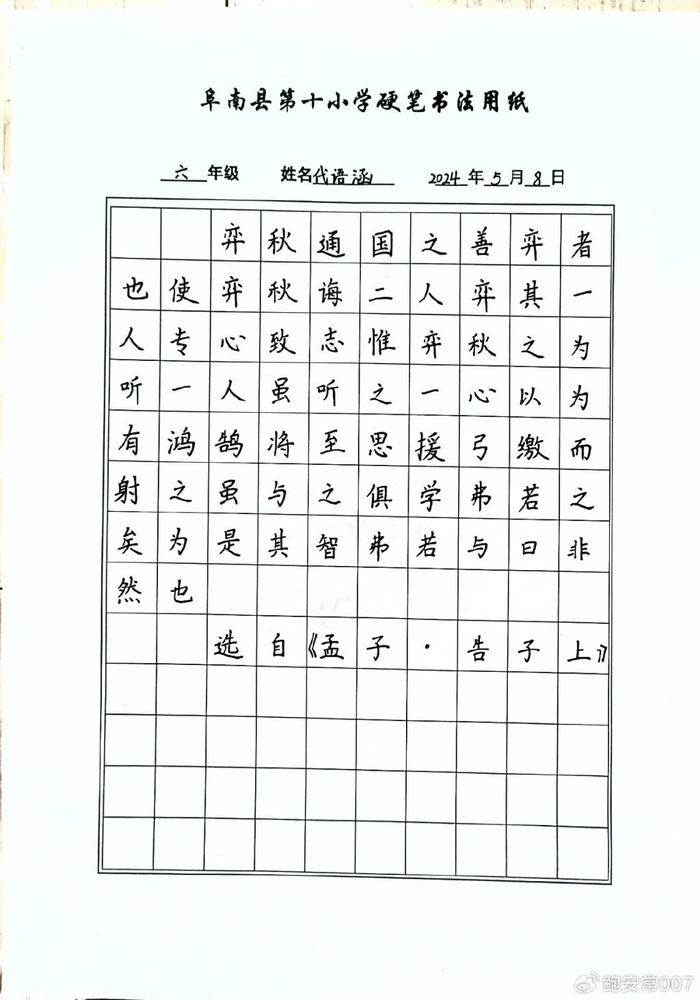 阜南县第十小学硬笔书法用纸
六 年级 姓名 代语涵 2024 年 5 月 8 日
弈秋通国之善弈者
也使弈秋诲二人弈其一
人专心致志惟弈秋之为
听一人虽听之一心以为
有鸿鹄将至思援弓缴而
射之虽与之俱学弗若之
矣为是其智弗若与曰非
然也
选自《孟子·告子上》
@鲍安常007